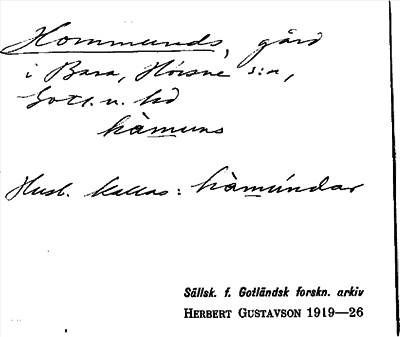 Hommunds, gård
i Bara, Hörsne s:n,
Gotl. n. hd
hàmuns
Husb. kallas: hàmúndar
Sällsk. f. Gotländsk forskn. arkiv
HERBERT GUSTAVSON 1919—26